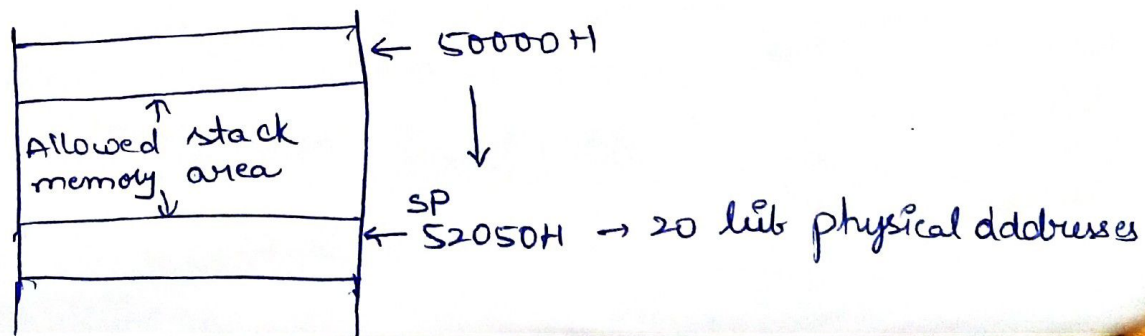 ← 50000H
Allowed stack
memory area
SP
← 52050H → 20 bit physical dddresses